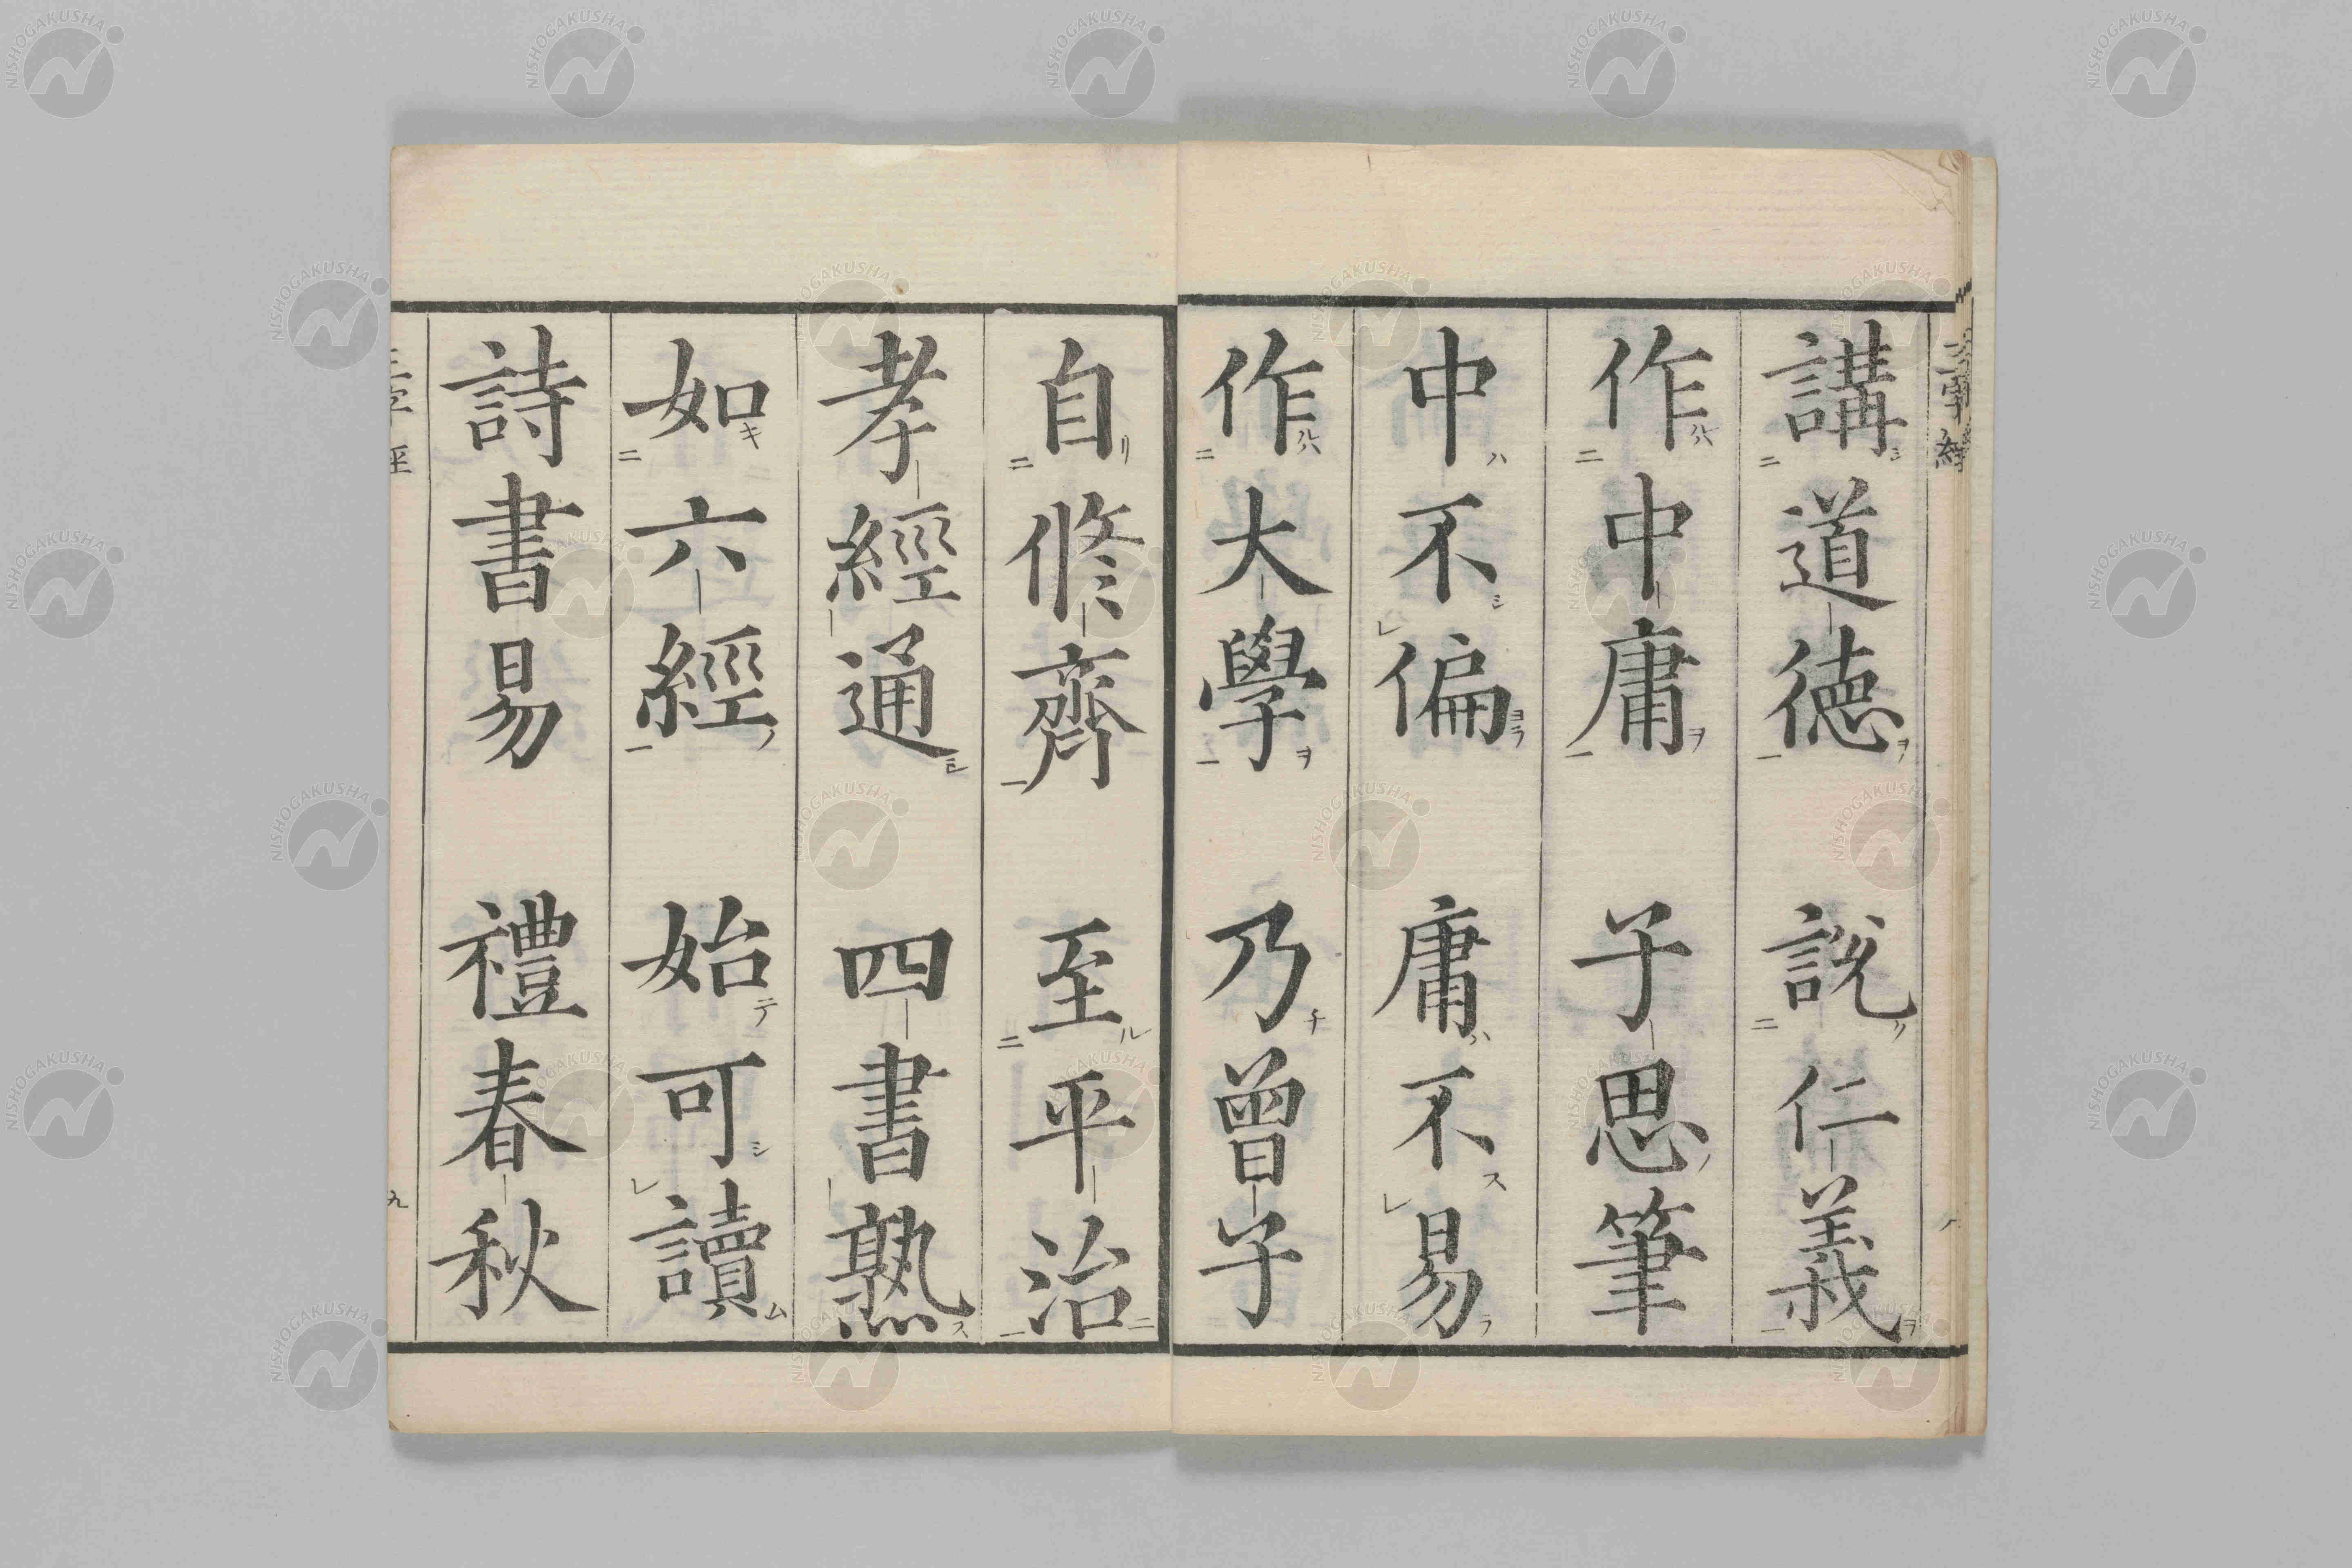 講道德 説仁義
作中庸 子思筆
中不偏 庸不易
作大學 乃曾子
自修齊 至平治
孝經通 四書熟
如六經 始可讀
詩書易 禮春秋
三字經
九
NISHOGAKUSHA